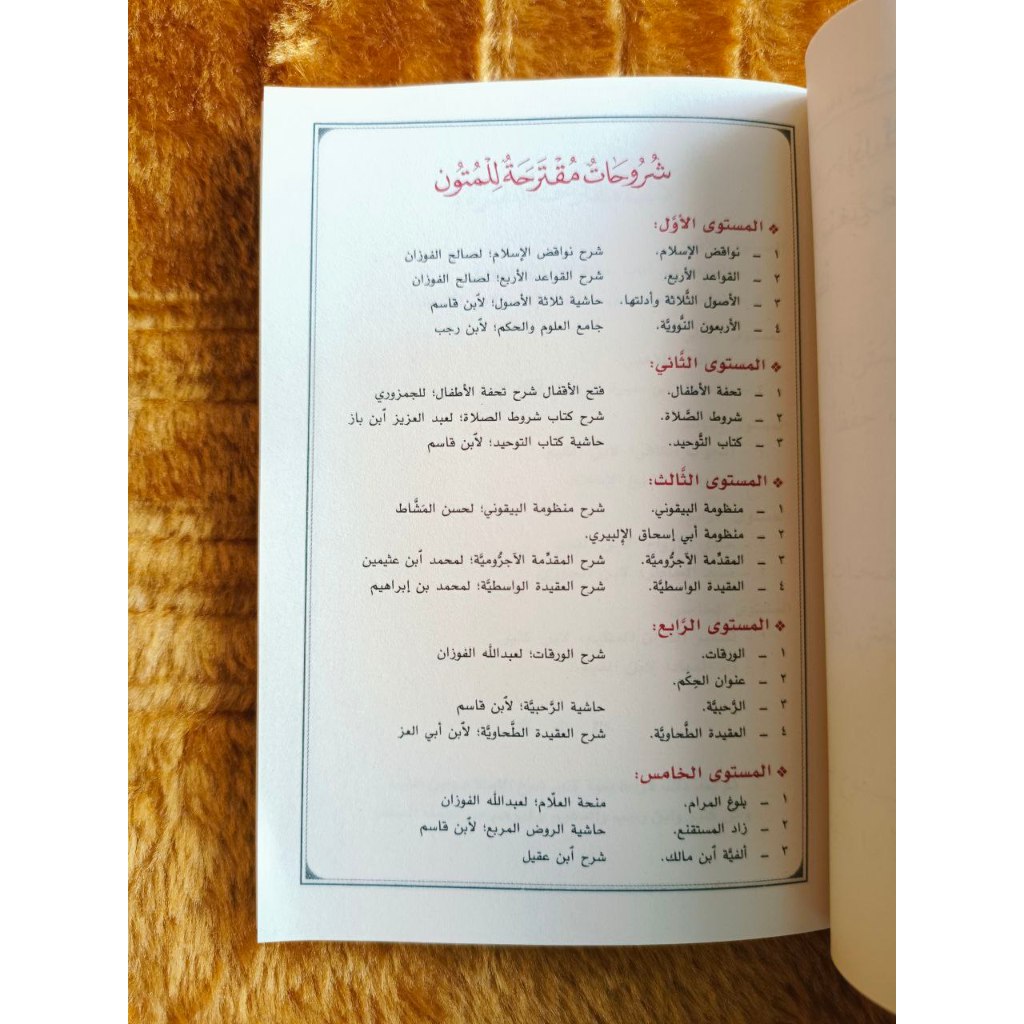 شُرُوحَاتٌ مُقْتَرَحَةٌ لِلْمُتُون
❖ المستوى الأوَّل:
١ ـ نواقض الإسلام. شرح نواقض الإسلام؛ لصالح الفوزان
٢ ـ القواعد الأربع. شرح القواعد الأربع؛ لصالح الفوزان
٣ ـ الأصول الثَّلاثة وأدلتها. حاشية ثلاثة الأصول؛ لٱبن قاسم
٤ ـ الأربعون النَّوويَّة. جامع العلوم والحكم؛ لٱبن رجب
❖ المستوى الثَّاني:
١ ـ تحفة الأطفال. فتح الأقفال شرح تحفة الأطفال؛ للجمزوري
٢ ـ شروط الصَّلاة. شرح كتاب شروط الصلاة؛ لعبد العزيز ٱبن باز
٣ ـ كتاب التَّوحيد. حاشية كتاب التوحيد؛ لٱبن قاسم
❖ المستوى الثَّالث:
١ ـ منظومة البيقوني. شرح منظومة البيقوني؛ لحسن المَشَّاط
٢ ـ منظومة أبي إسحاق الإلبيري.
٣ ـ المقدِّمة الآجرُّوميَّة. شرح المقدِّمة الآجرُّوميَّة؛ لمحمد ٱبن عثيمين
٤ ـ العقيدة الواسطيَّة. شرح العقيدة الواسطيَّة؛ لمحمد بن إبراهيم
❖ المستوى الرَّابع:
١ ـ الورقات. شرح الورقات؛ لعبدالله الفوزان
٢ ـ عنوان الحِكَم.
٣ ـ الرَّحبيَّة. حاشية الرَّحبيَّة؛ لٱبن قاسم
٤ ـ العقيدة الطَّحاويَّة. شرح العقيدة الطَّحاويَّة؛ لٱبن أبي العز
❖ المستوى الخامس:
١ ـ بلوغ المرام. منحة العلّام؛ لعبدالله الفوزان
٢ ـ زاد المستقنع. حاشية الروض المربع؛ لٱبن قاسم
٣ ـ ألفيَّة ٱبن مالك. شرح ٱبن عقيل